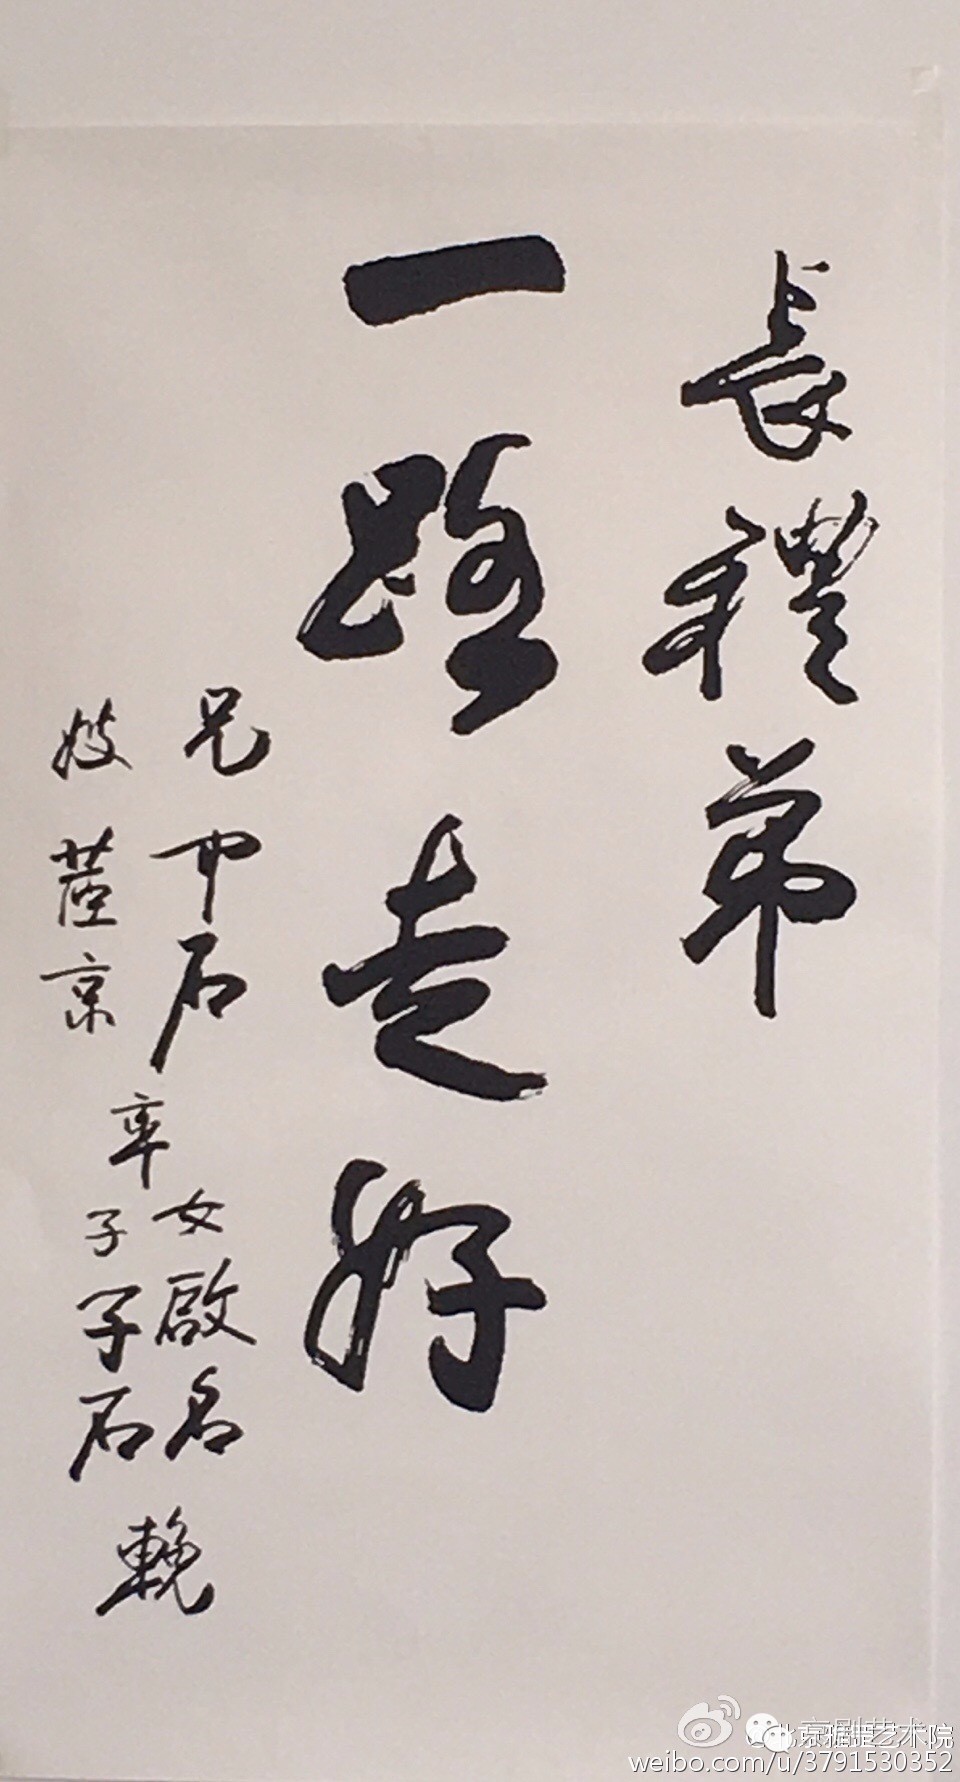 長禮弟
一路走好
兄中石
嫂茝京
率
女啟名
子子石
輓
京剧艺术
weibo.com/u/3791530352